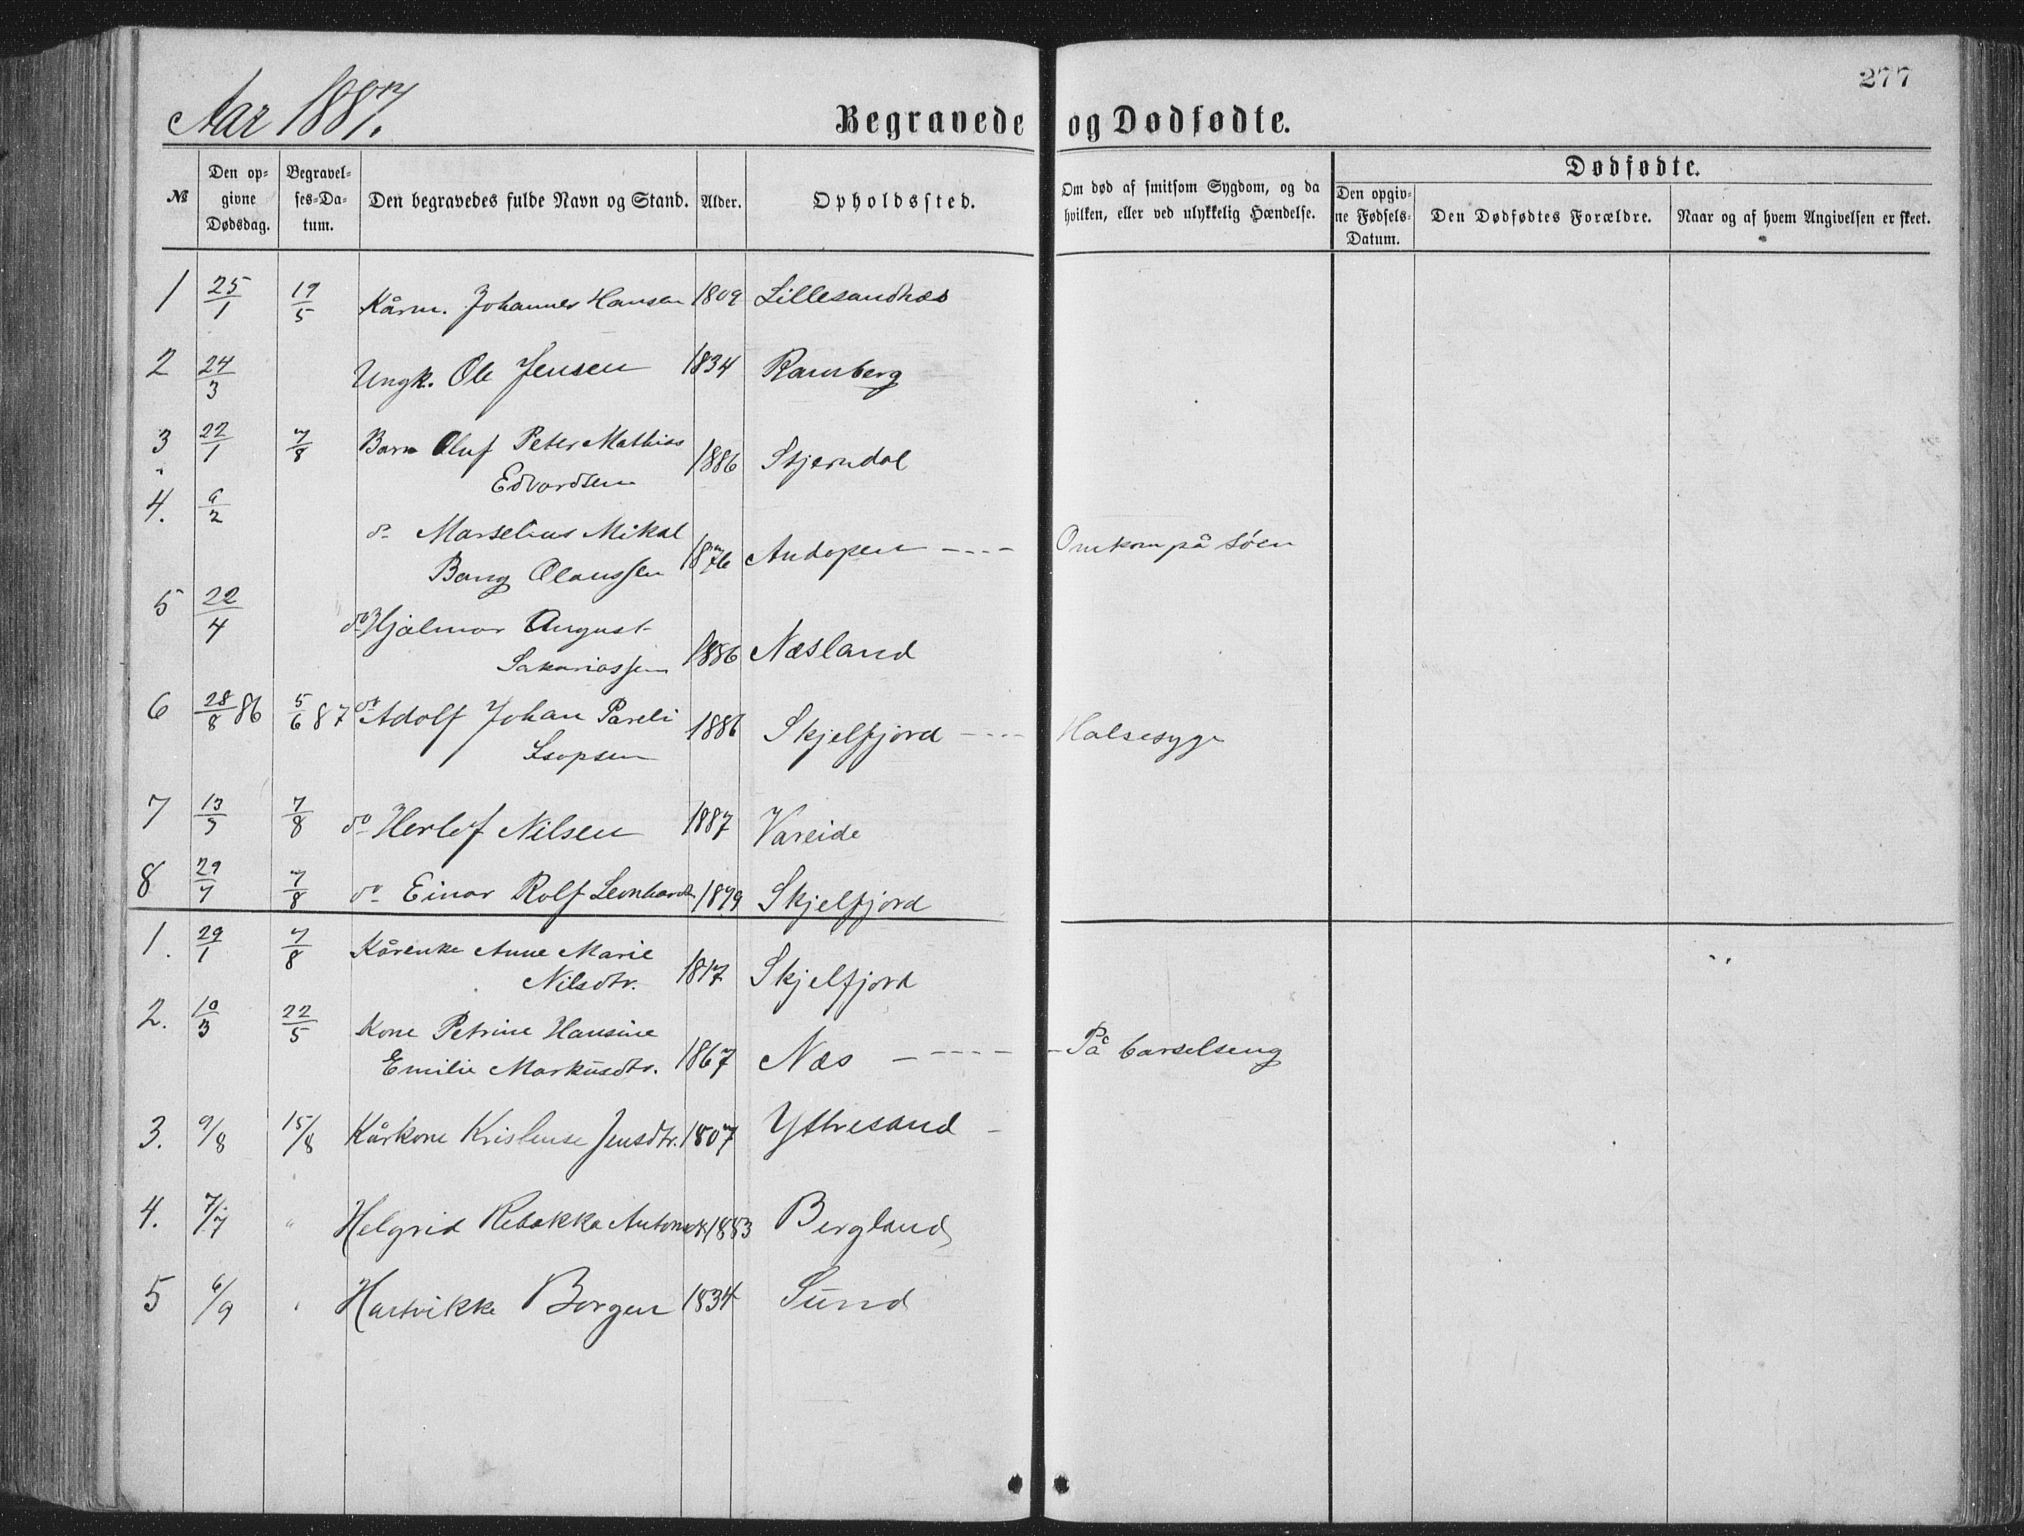 277
Aar 1887.
Begravede og Dødfødte.
№
Den opgivne Dødsdag.
Begravelses-Datum.
Den begravedes fulde Navn og Stand.
Alder.
Opholdssted.
Om død af smitsom Sygdom, og da hvilken, eller ved ulykkelig Hændelse.
Dødfødte.
Den opgivne Fødsels-Datum.
Den Dødfødtes Forældre.
Naar og af hvem Angivelsen er skeet.
1 25/1 19/5 Kårm. Johannes Hansen 1809 Lillesandnes
2 24/3 Ungk. Ole Jensen 1834 Ramberg
3 22/1 7/8 Barn Oluf Peter Mathias
Edvardsen 1886 Stjerndal
4. 9/2 do Marselius Mikal
Bang Olaussen 1876 Andopen - - - - Omkom på søen
5 22/4 do Hjalmar August
Sakariassen 1886 Næsland
6 28/8 86 5/6 87 do Adolf Johan Pareli
Isopsen 1886 Skjelfjord - - - - Halsesyge
7 13/5 7/8 do Herlof Nilsen 1887 Vareide
8 29/7 7/8 do Einar Rolf Leonhards 1879 Skjelfjord
1. 29/1 7/8 Kårenke Anne Marie
Nilsdtr. 1817 Skjelfjord
2. 10/3 22/5 Kone Petrine Hansine
Emilie Markusdtr. 1867 Næs - - - - - På barselseng
3. 9/8 15/8 Kårkone Kristense Jensdtr. 1807 Yttresand -
4. 7/7 " Helgrid Rebekka Antonsdtr 1883 Bergland
5 6/9 " Hartvikke Borgen 1834 Sund